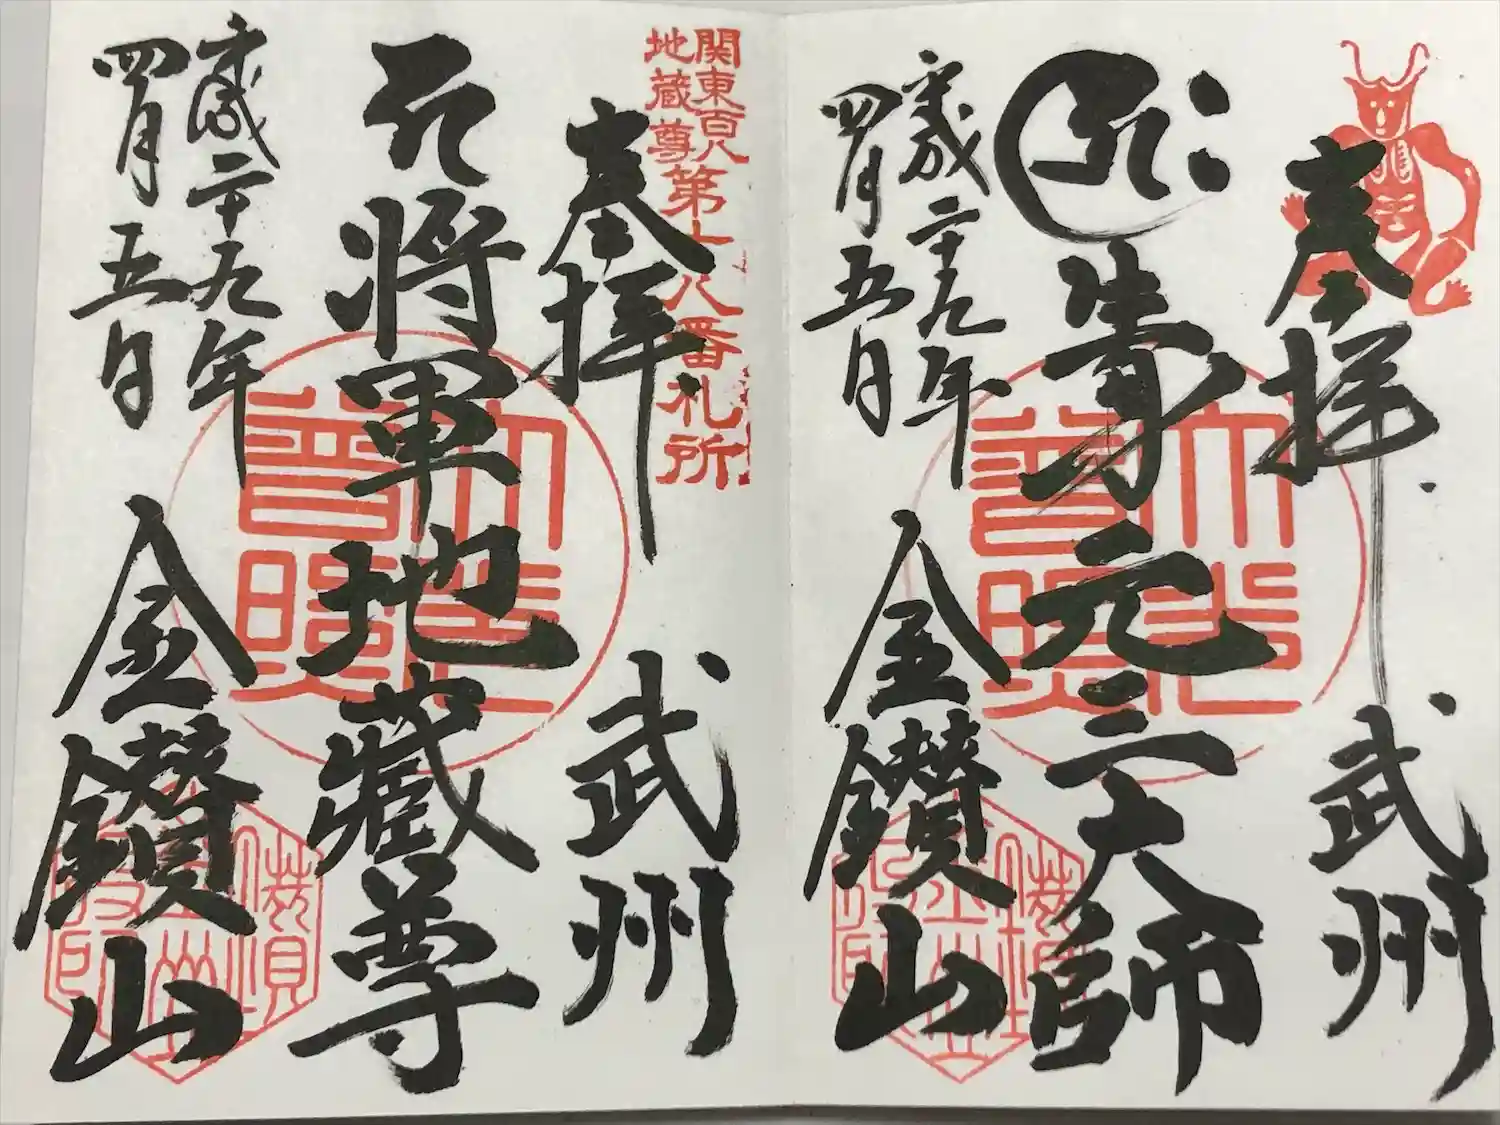 奉拝
武州
元三大師
歳二十九年
四月五日
金鑚山
関東百八
地蔵尊
第十八番札所
奉拝
武州
将軍地蔵尊
歳二十九年
四月五日
金鑚山